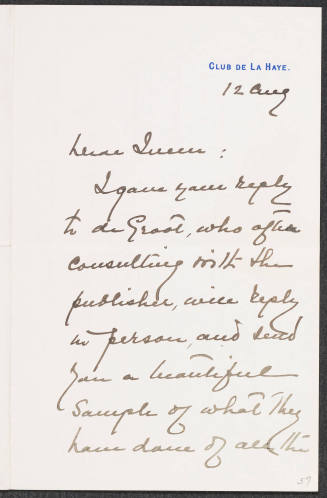 CLUB DE LA HAYE.
12 Aug
Dear
I gave your reply
to de Groot, who after
consulting with the
publisher, will reply
in person, and send
you a beautiful
sample of what they
have done of all the
57